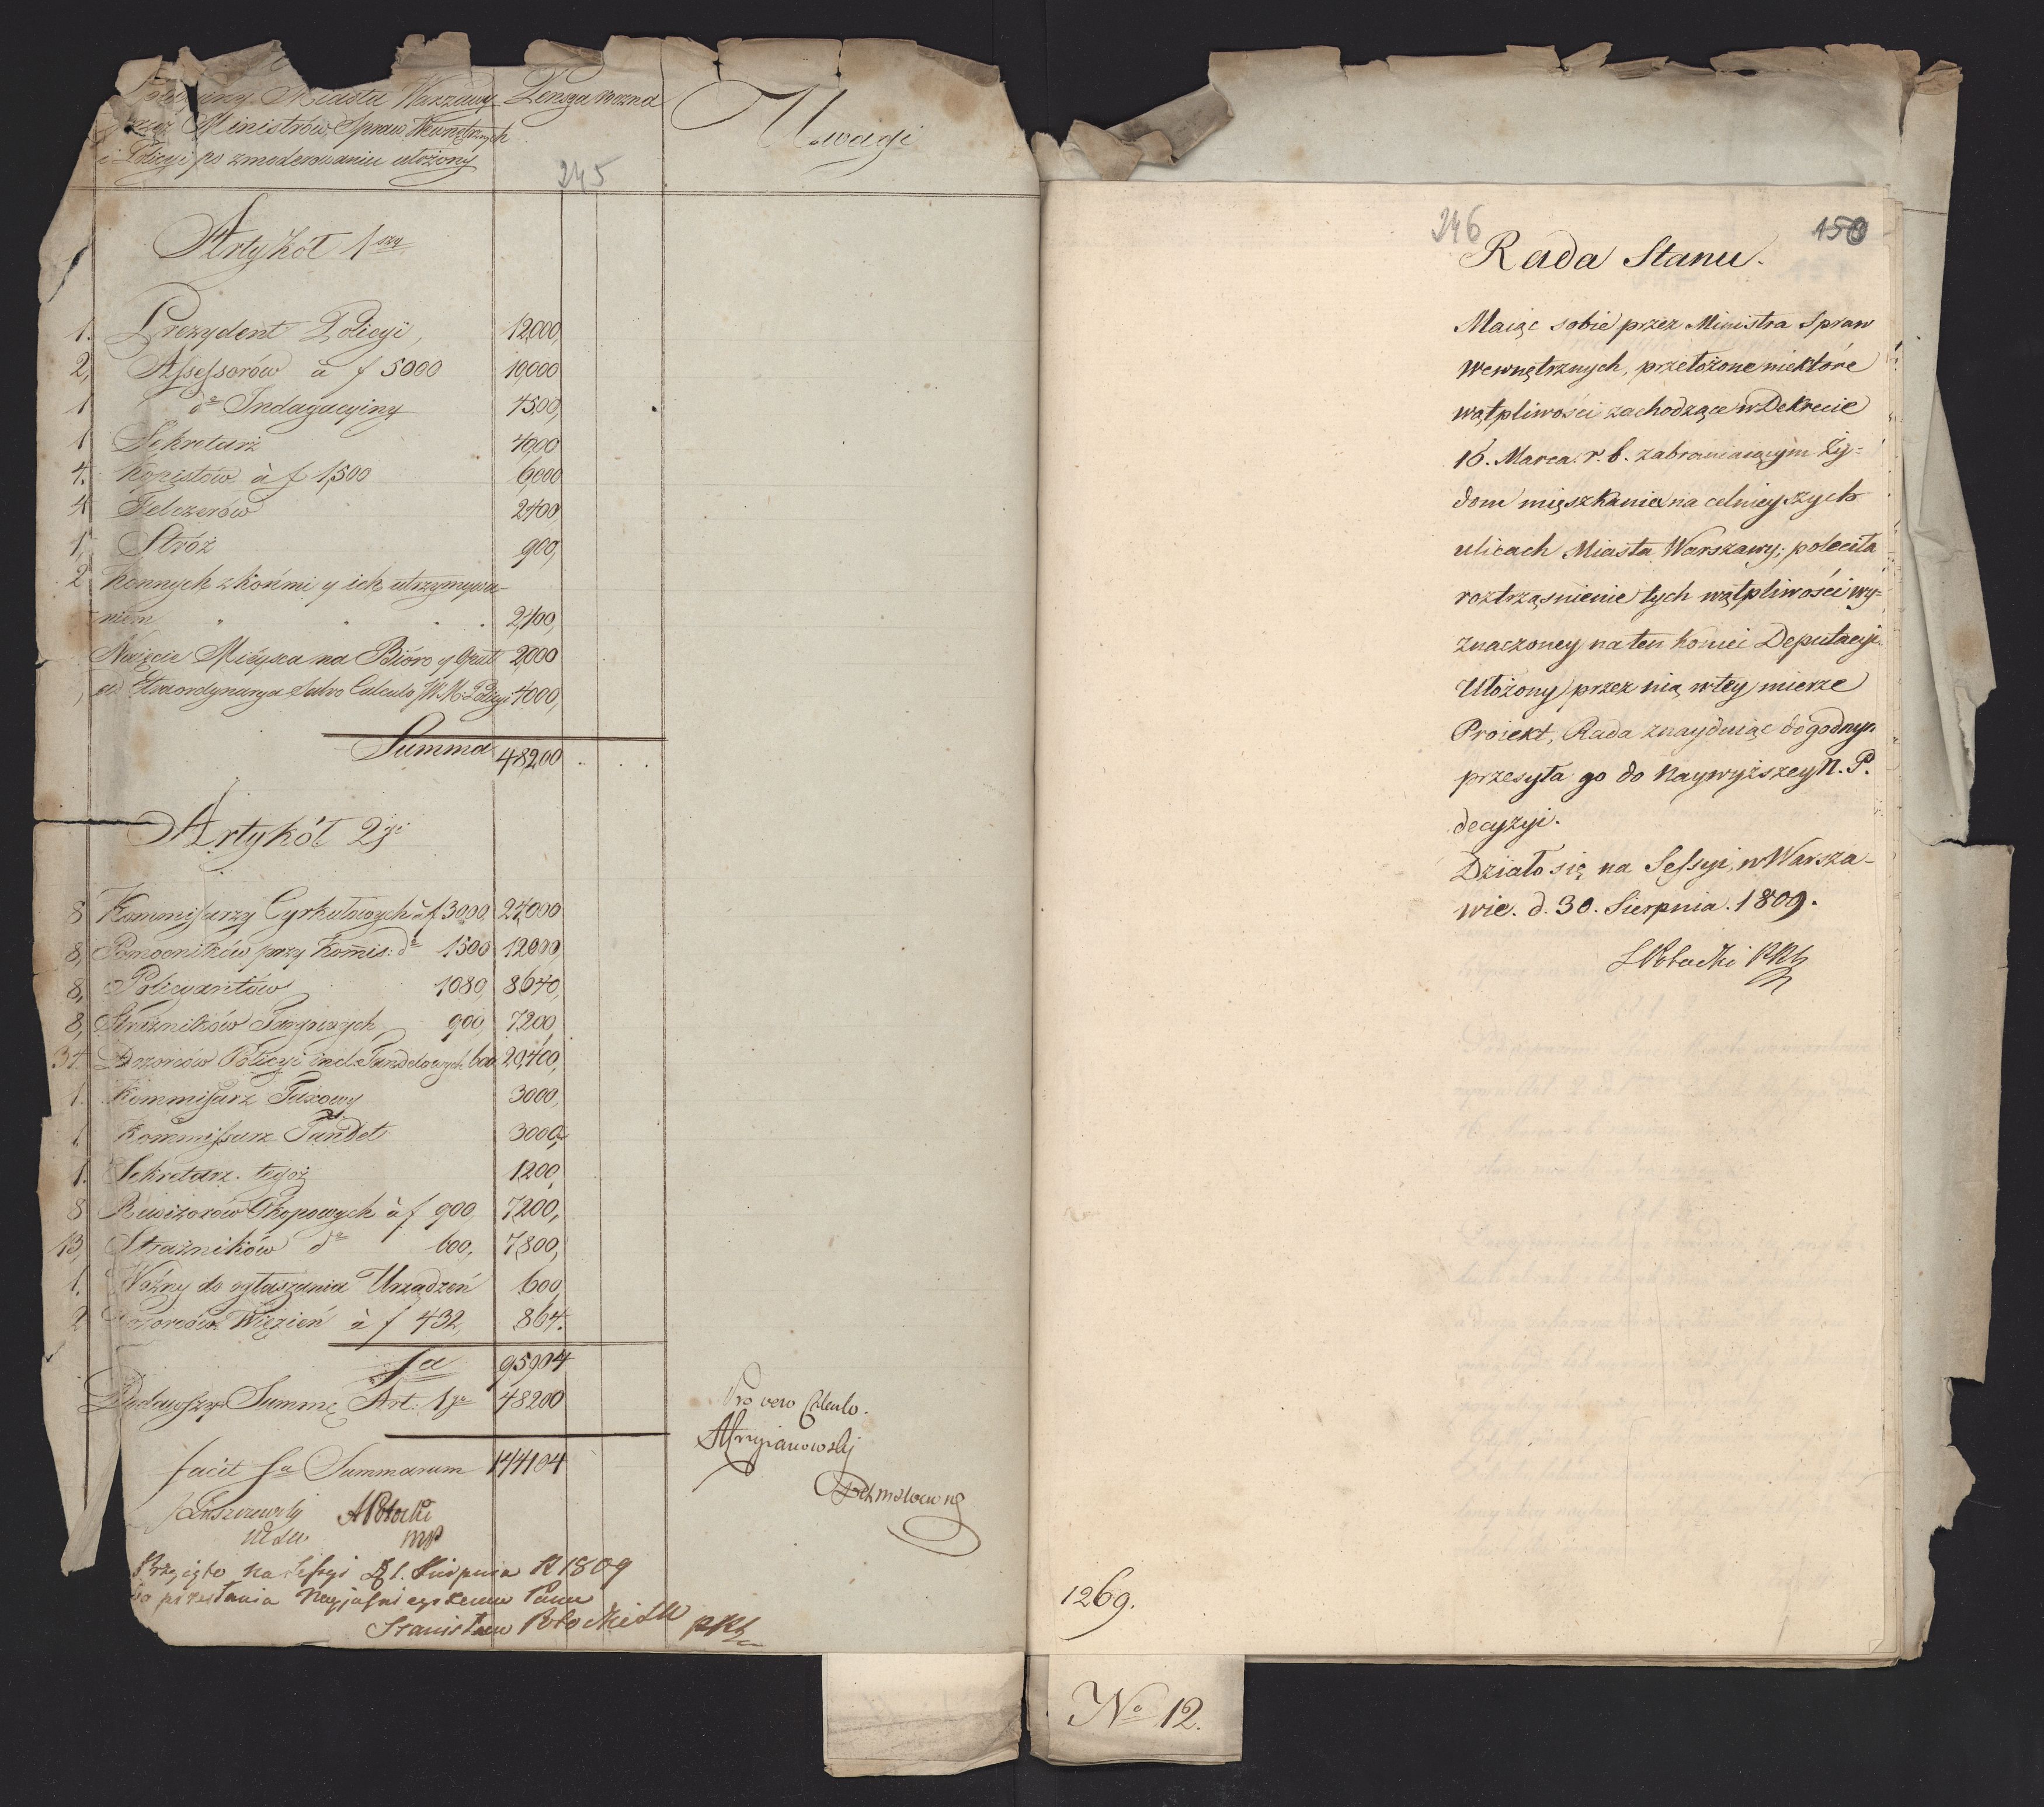 Miasta Warszawy
Pensya roczna
Uwagi
przez Ministrów Spraw Wewnętrznych
i Policyi po zmoderowaniu ułożony
245
Artykół 1szy
1. Prezydent Policyi, 12,000,
2, Assessorów à f 5000 10,000
1 do Indagacyiny 4500,
1 Sekretarz 4000
4. Kopistów à f 1,500 6,000
4 Felczerów 2400
1, Stróż 900,
2 Konnych z końmi y ich utrzymywa-
niem " . . . 2,400,
Naięcie Mieysca na Bióro y Opał 2,000
ad Extraordynarya salvo Calculo JW. M: Policyi 4000,
Summa 48,200 . . .
Artykół 2gi
8 Kommissarzy Cyrkułowych à f 3000, 24,000
8, Pomocników przy Kommis: do 1500 12,000,
8, Policyantów 1080, 8640,
8, Strażników Targowych 900, 7200,
34. Dozorców Policyi incl. Tandetowych 600 20,400,
1. Kommissarz Taxowy 3000,
1. Kommissarz Tandet 3000,
1. Sekretarz tegoż 1200,
8 Rewizorów Okopowych à f 900, 7,200,
13, Strażników do 600, 7,800,
1. Woźny do ogłaszania Urządzeń 600,
2 Dozorców Więzień à f 432, 864.
Sa 95904
Dodawszy Summę Art: 1go 48200
facit Sa Summarum 144104
Pro vero Calculo.
APotocki
Przyięto na Sessyi d. 1. Sierpnia R 1809
do przesłania Nayjaśnieyszemu Panu
Stanisław Potocki
PRS
246
150
Rada Stanu.
Maiąc sobie przez Ministra Spraw
Wewnętrznych, przełożone niektóre
wątpliwości zachodzące w Dekrecie
16. Marca. r. b. zabraniaiącym Ży=
dom mięszkania na celnieyszych
ulicach Miasta Warszawy; poleciła
roztrząśnienie tych wątpliwości wy=
znaczoney na ten koniec Deputacyi.
Ułożony przez nią w tey mierze
Proiekt, Rada znayduiąc dogodnym
przesyła go do Naywyższey N. P.
decyzyi.
Działo się na Sessyi w Warsza-
wie. d. 30. Sierpnia. 1809.
SPotocki PRS
1269.
No 12.